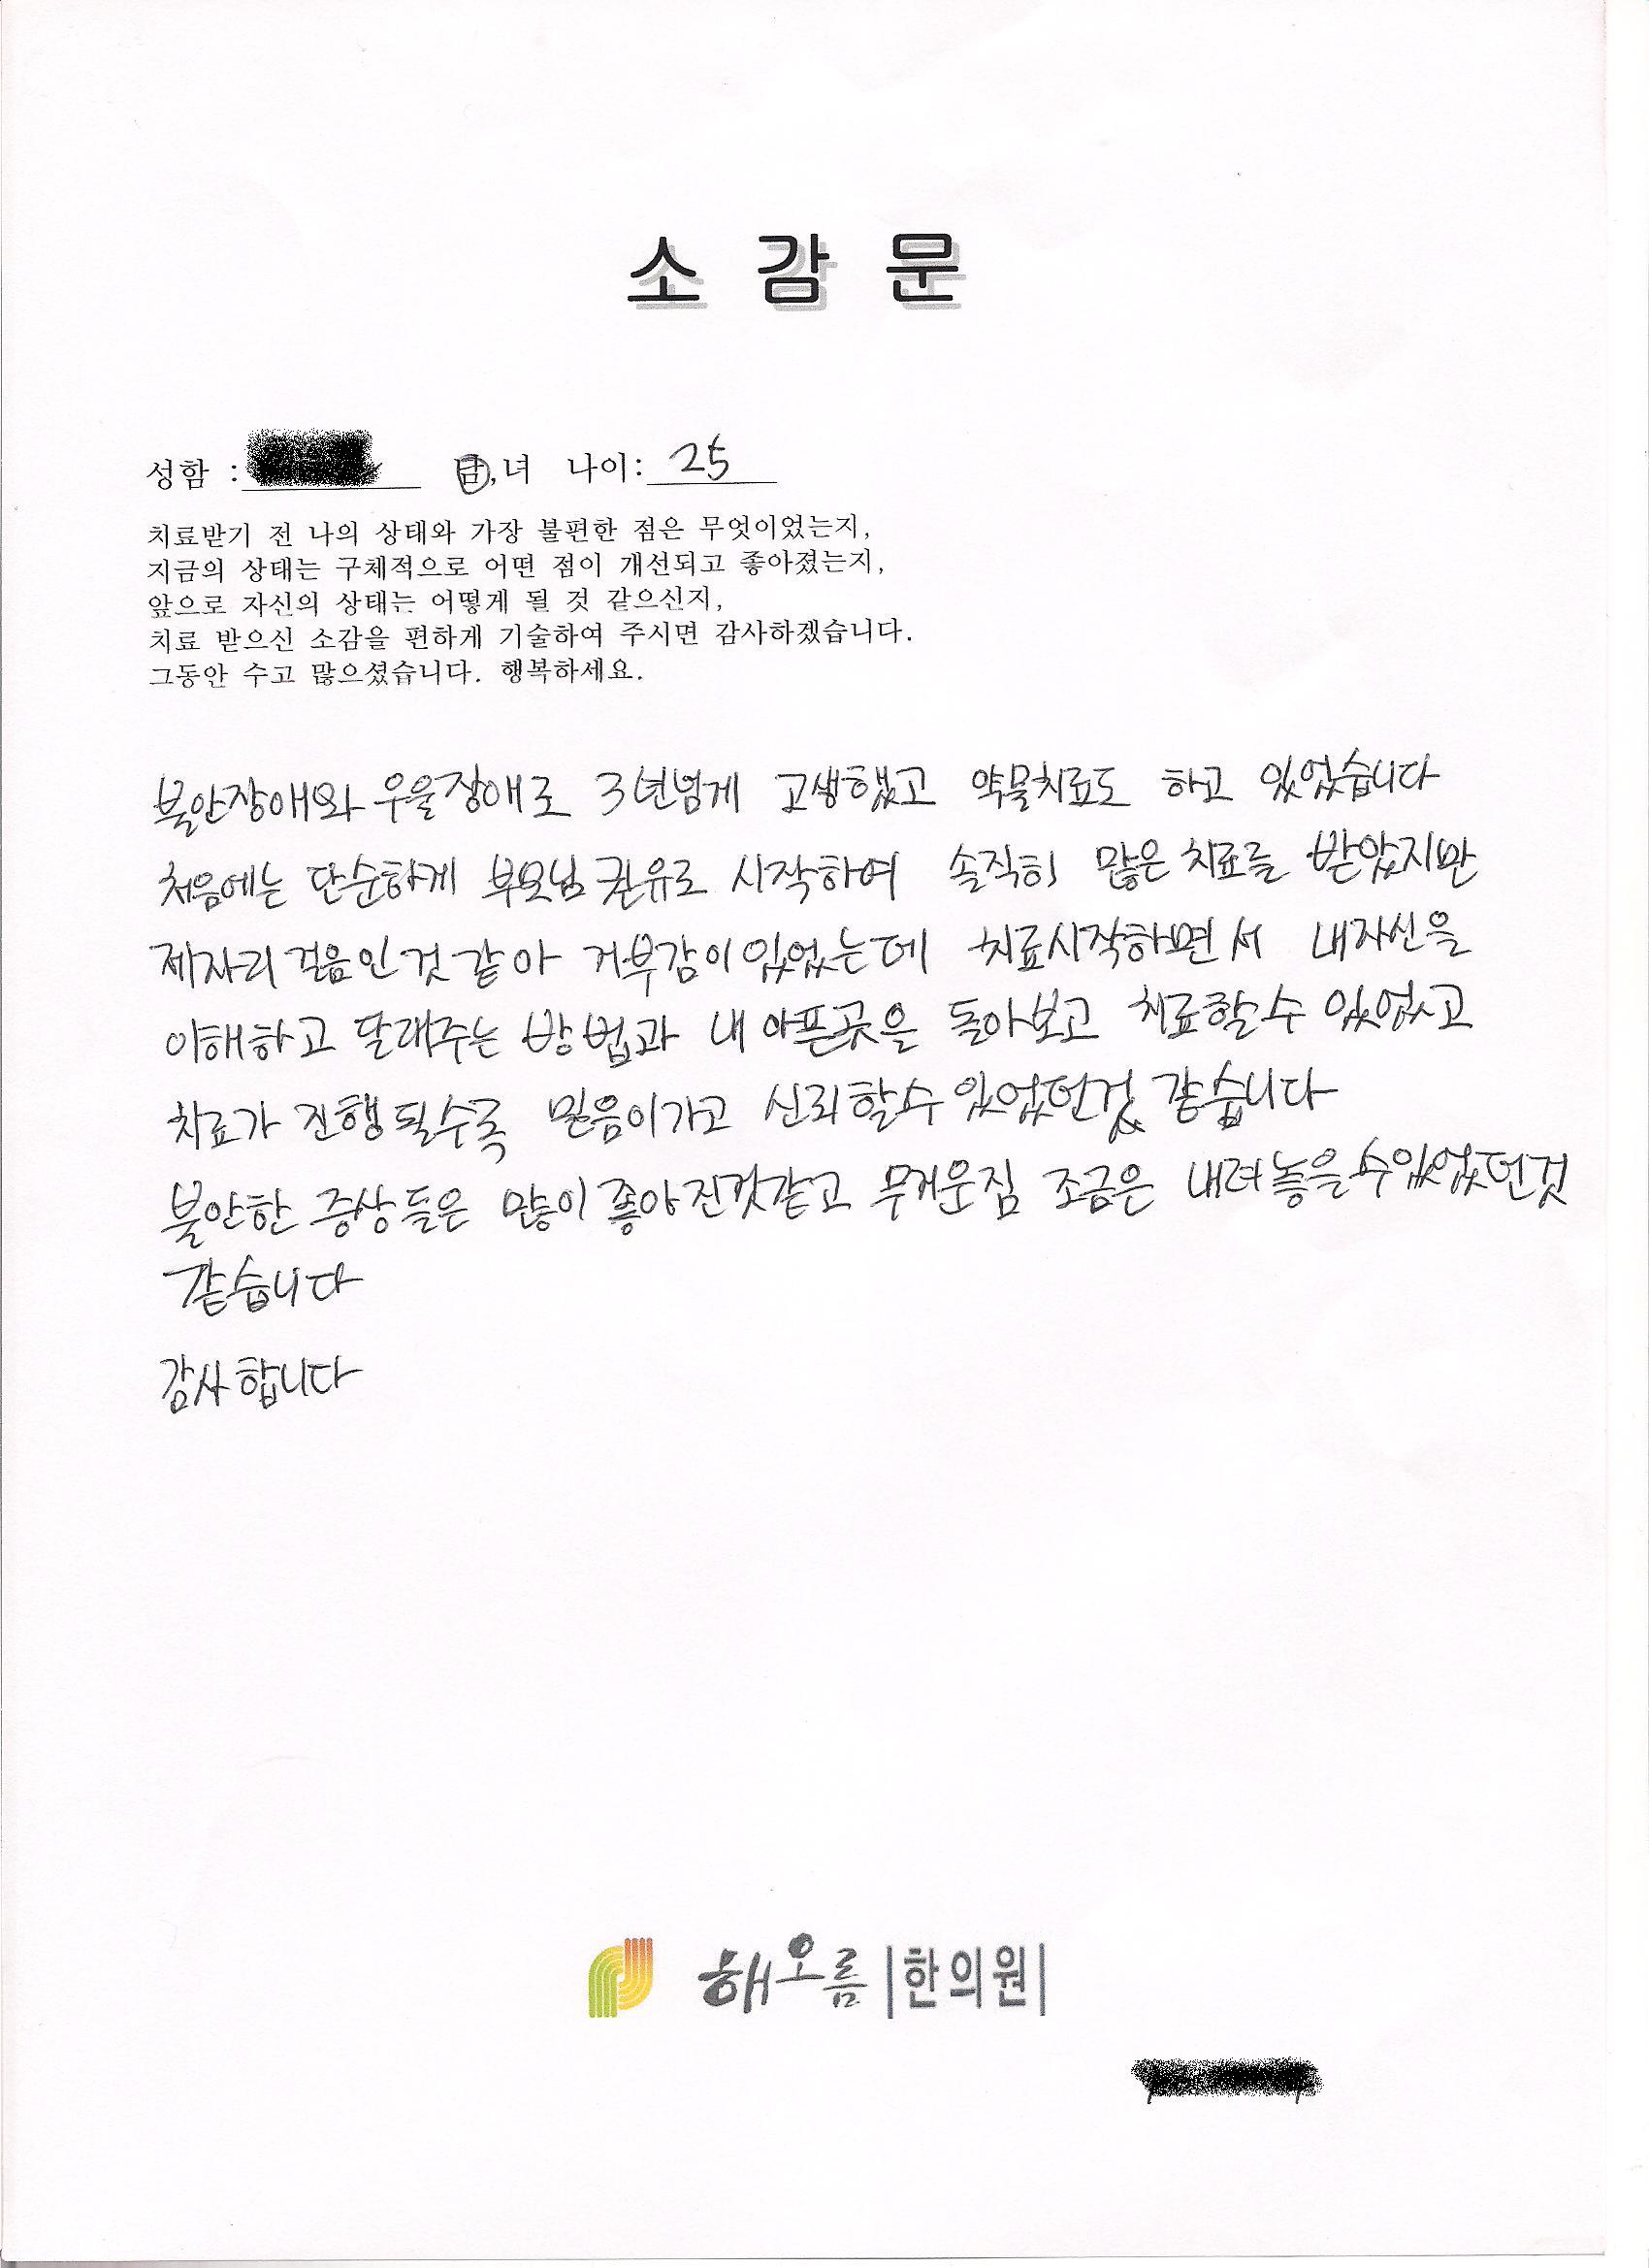 소 감 문
성함 : 남,녀 나이: 25
치료받기 전 나의 상태와 가장 불편한 점은 무엇이었는지,
지금의 상태는 구체적으로 어떤 점이 개선되고 좋아졌는지,
앞으로 자신의 상태는 어떻게 될 것 같으신지,
치료 받으신 소감을 편하게 기술하여 주시면 감사하겠습니다.
그동안 수고 많으셨습니다. 행복하세요.
불안장애와 우울장애로 3년넘게 고생했고 약물치료도 하고 있었습니다
처음에는 단순하게 부모님 권유로 시작하여 솔직히 많은 치료를 받았지만
제자리 걸음인 것 같아 거부감이 있었는데 치료시작하면서 내자신을
이해하고 달래주는 방법과 내 아픈곳을 돌아보고 치료할수 있었고
치료가 진행될수록 믿음이가고 신뢰할수 있었던것 같습니다
불안한 증상들은 많이 좋아진것같고 무거운짐 조금은 내려놓을수있었던것
같습니다
감사합니다
해오름 한의원